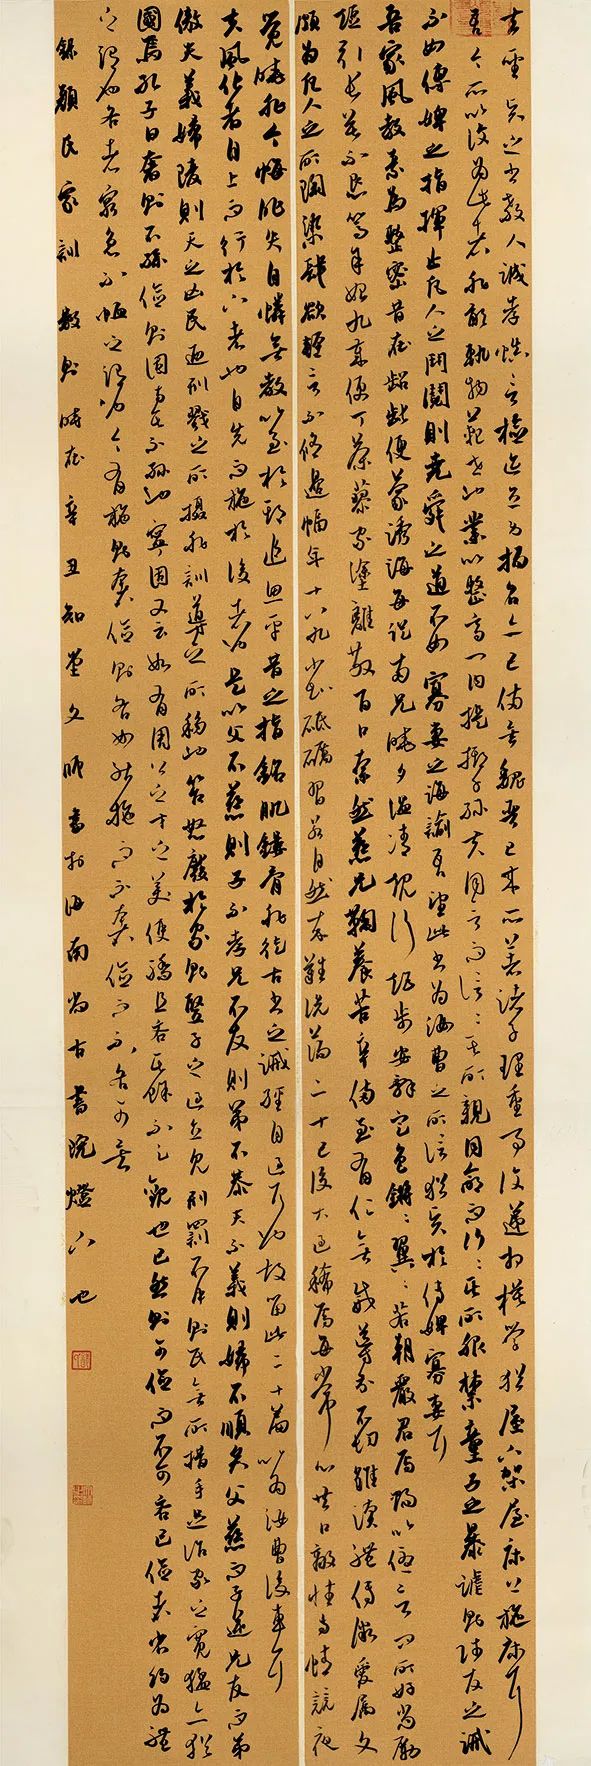 夫聖賢之書教人誠孝慎言檢迹立身揚名亦已備矣魏晉已來所著諸子理重事複遞相模學猶屋下架屋床上施床耳
吾今所以復為此者非敢軌物範世也業以整齊門內提撕子孫夫同言而信信其所親同命而行行其所服禁童子之暴謔則師友之誡
不如傅婢之指揮止凡人之鬥鬩則堯舜之道不如寡妻之誨諭吾望此書為汝曹之所信猶賢於傅婢寡妻耳
吾家風教素為整密昔在齠齔便蒙誘誨每從兩兄曉夕溫凊規行矩步安辭定色鏘鏘翼翼若朝嚴君焉賜以優言問所好尚勵
短引長莫不懇篤年始九歲便丁荼蓼家塗離散百口索然慈兄鞠養苦辛備至有仁無威導示不切雖讀禮傳微愛屬文
頗為凡人之所陶染肆欲輕言不脩邊幅年十八九少知砥礪習若自然卒難洗蕩二十已後大過稀焉每常心共口敵性與情競夜
覺曉非今悔昨失自憐無教以至於斯追思平昔之指銘肌鏤骨非徒古書之誡經目過耳也故留此二十篇以為汝曹後車耳
夫風化者自上而行於下者也自先而施於後者也是以父不慈則子不孝兄不友則弟不恭夫不義則婦不順矣父慈而子逆兄友而弟
傲夫義婦陵則天之凶民迺刑戮之所攝非訓導之所移也笞怒廢於家則豎子之過立見刑罰不中則民無所措手足治家之寬猛亦猶
國焉孔子曰奢則不孫儉則固與其不孫也寧固又云如有周公之才之美使驕且吝其餘不足觀也已然則可儉而不可吝已儉者省約為禮
之謂也吝者窮急不恤之謂也今有施則奢儉則吝如能施而不奢儉而不吝可矣
錄顏氏家訓數則時在辛丑知堂文師書於海南尚古書院燈下也